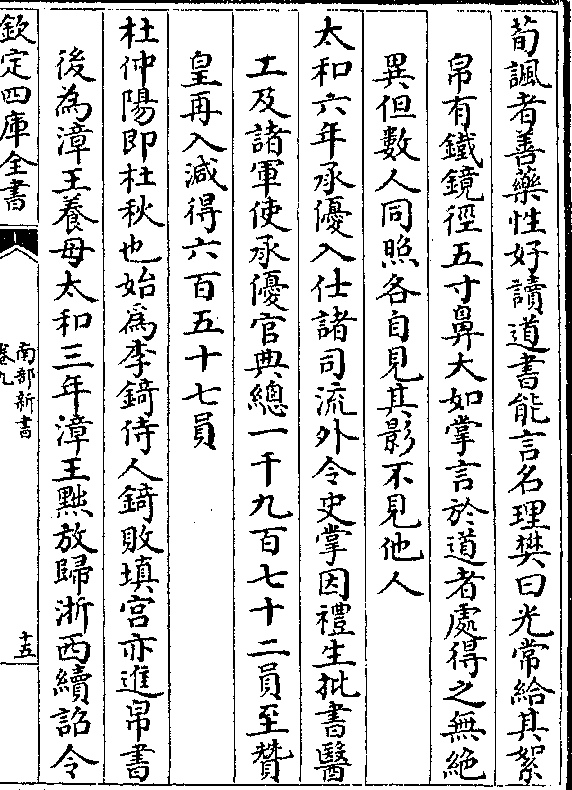 荀諷者善藥性好讀道書能言名理樊曰光常給其絮
帛有鐵鏡徑五寸鼻大如掌言於道者處得之無絶
異但數人同照各自見其影不見他人
太和六年承優入仕諸司流外令史掌因禮生批書醫
工及諸軍使承優官典總一千九百七十二員至贊
皇再入減得六百五十七員
杜仲陽即杜秋也始為李錡侍人錡敗填宫亦進帛書
後為漳王養母太和三年漳王黜放歸浙西續詔令
欽定四庫全書
南部新書
卷九
十五